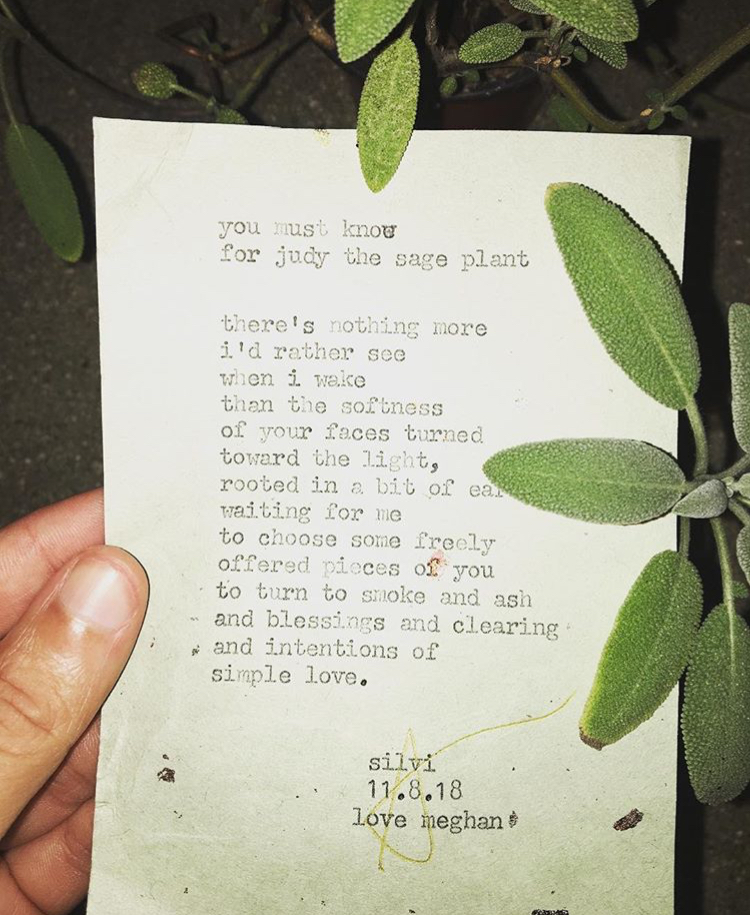 you must know
for judy the sage plant
there's nothing more
i'd rather see
when i wake
than the softness
of your faces turned
toward the light,
rooted in a bit of
waiting for me
to choose some freely
offered pieces of you
to turn to smoke and ash
and blessings and clearing
and intentions of
simple love.
silvi
11.8.18
love meghan